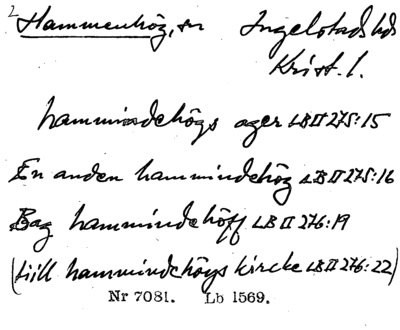 2 Hammenhög, sn Ingelstads hd
Krist. l.
hammindehögs ager LB II 275:15
En anden hammindehög LB II 275:16
Bag hammindehöff LB II 276:19
(till hammindehögs kircke LB II 276:22)
Nr 7081. Lb 1569.